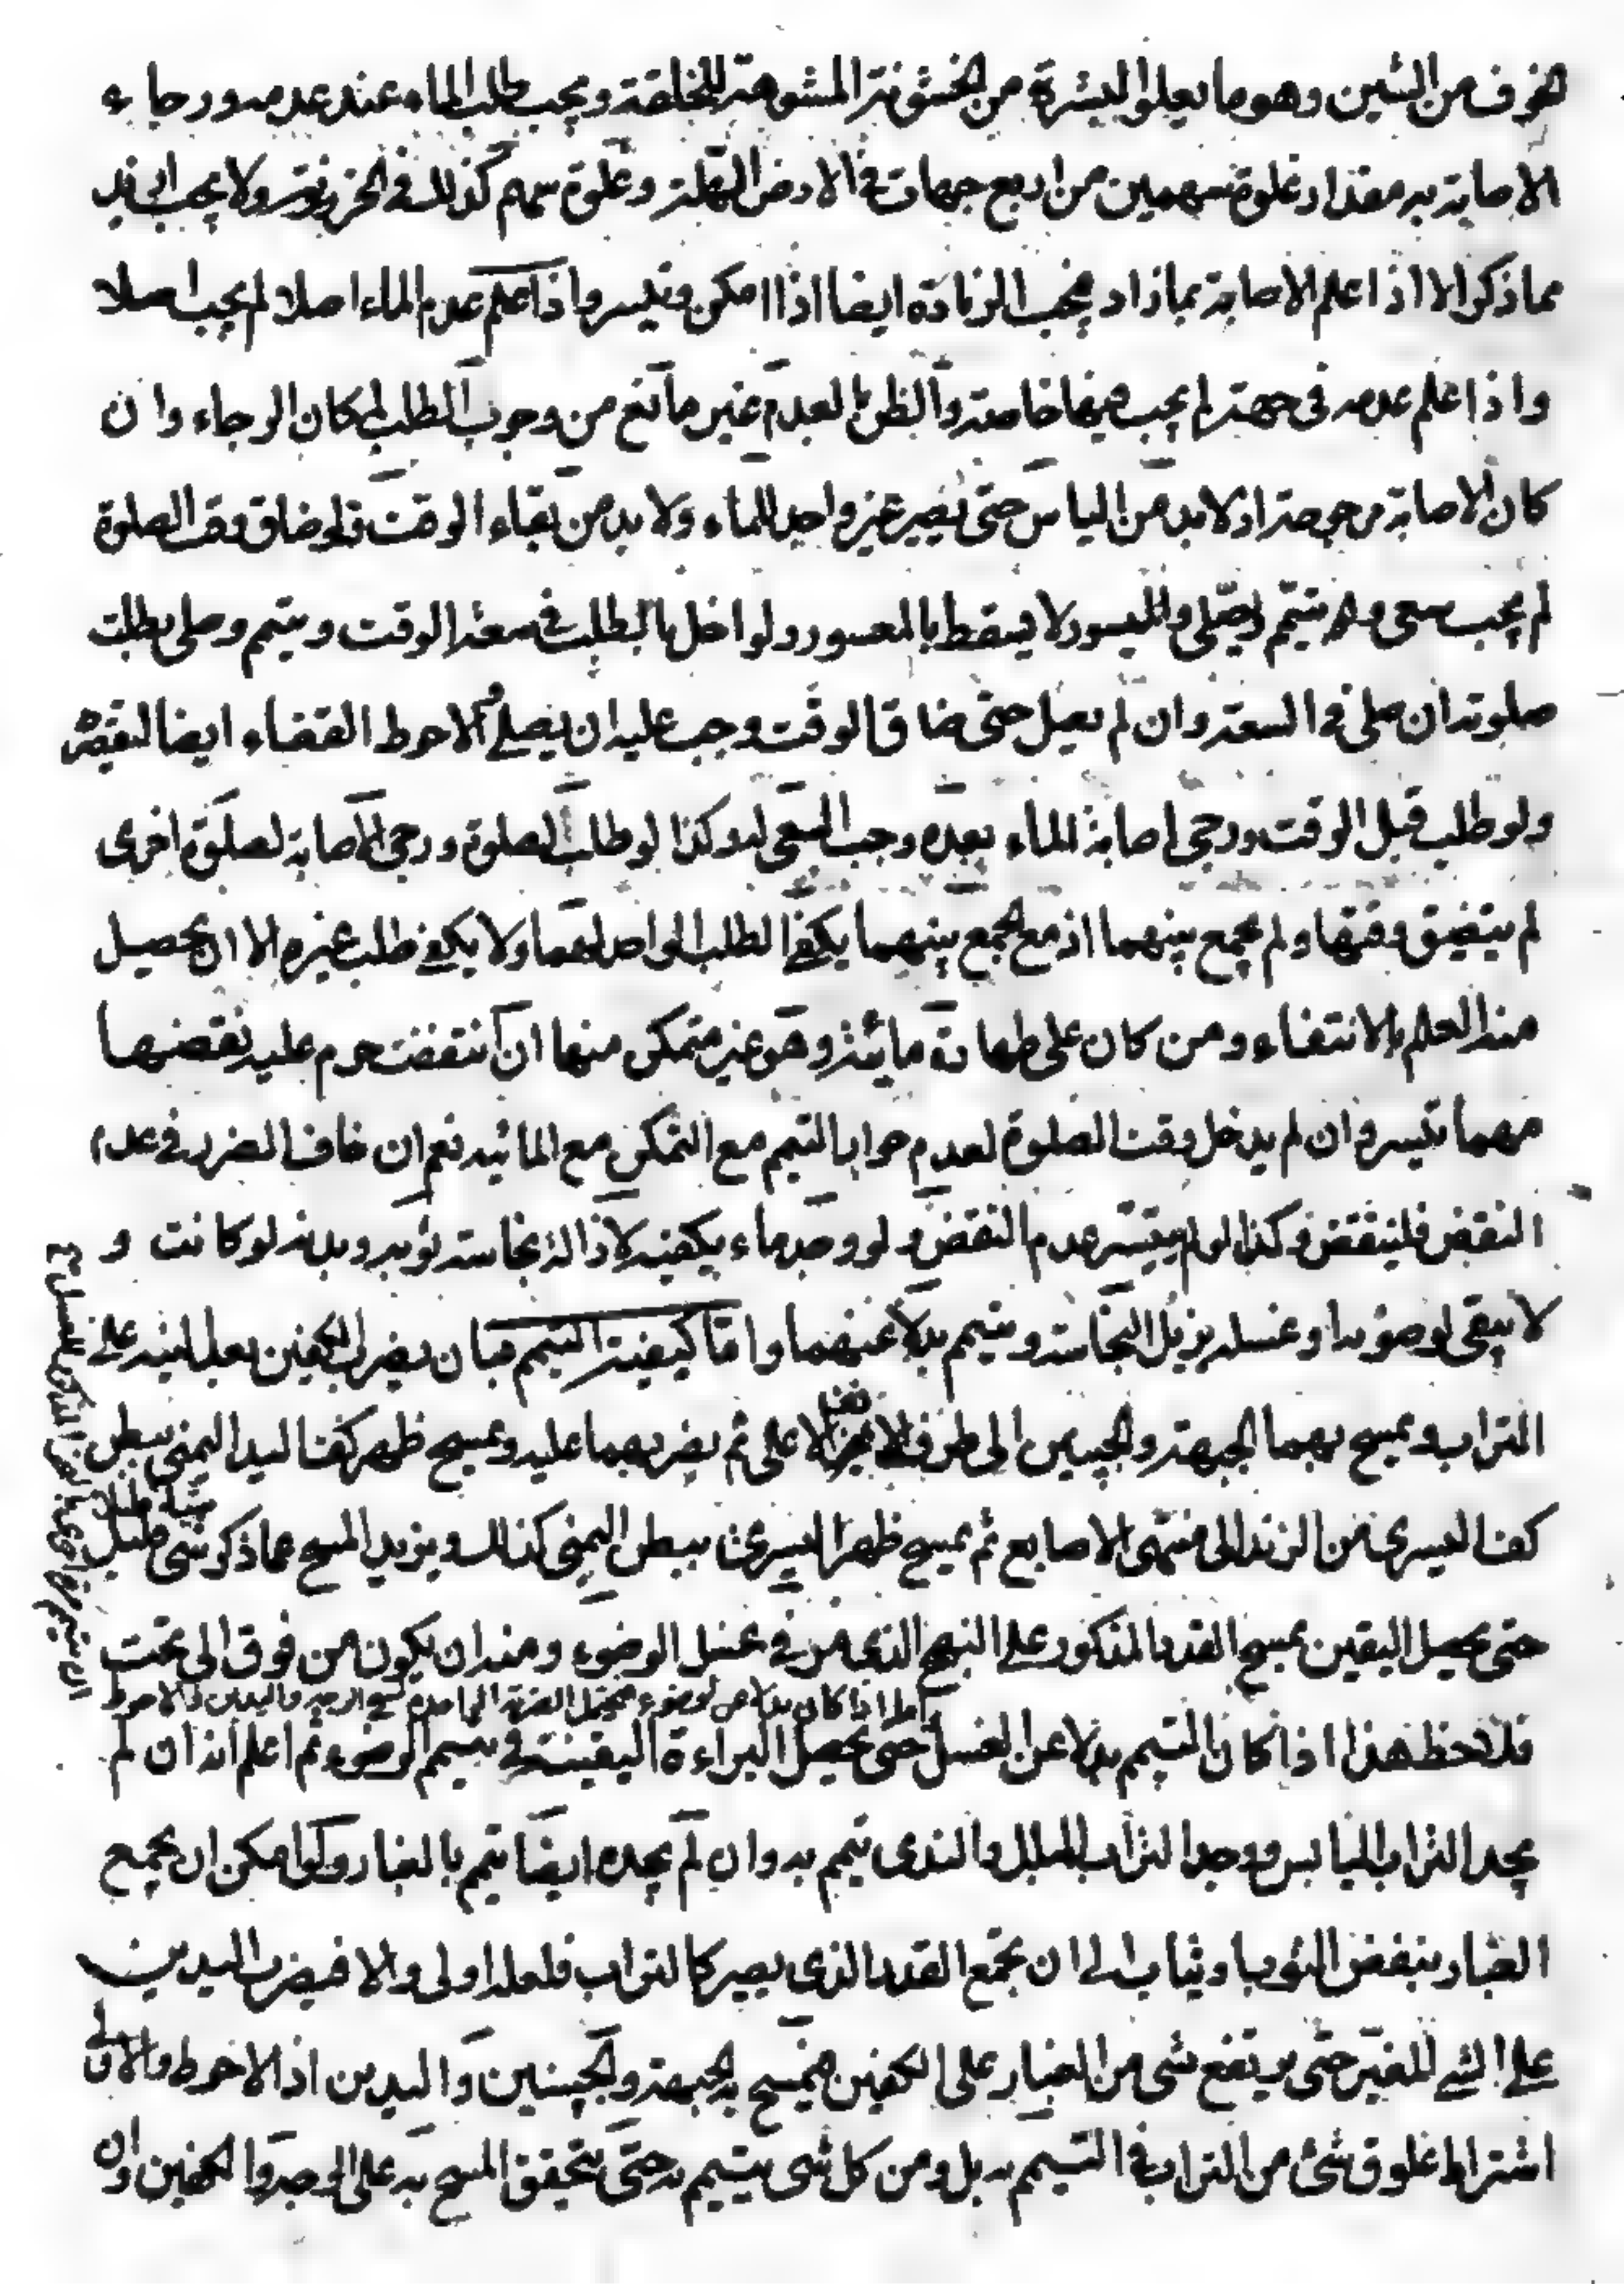 الخوف من الشين وهو ما يعلوا البشرة من الخشونة المشوهة للخلقة ويجب طلب الماء عند عدمه ورجاء
الاصابة به مقدار غلوة سهمين من اربع جهات في الارض السهلة وغلوة سهم كذلك في الحزنة ولا يجب ازيد
مما ذكر الا اذا علم الاصابة بما زاد فيجب الزيادة ايضا اذا امكن وتيسر واذا علم عدم الماء اصلا لم يجب اصلا
واذا علم عدمه في جهة لم يجب فيها خاصة والظن بالعدم غير مانع من وجوب الطلب لمكان الرجاء وان
كان الاصابة مرجوحة اذ لابد من الياس حتى يصير غير واجد للماء ولا بد من بقاء الوقت فلو ضاق وقت الصلوة
لم يجب سعى يتيمم ويصلى والميسور لا يسقط بالمعسور ولو اخل بالطلب في سعة الوقت ويتيمم وصلى بطلت
صلوته ان صلى في السعة وان لم يصل حتى ضاق الوقت وجب عليه ان يصلى الاحوط القضاء ايضا لتقصيره
ولو طلب قبل الوقت ورجى اصابة الماء بعده وجب السعى له وكذا لو طلب لصلوة ورجى الاصابة لصلوة اخرى
لم يتضيق وقتها ولم يجمع بينهما اذ مع الجمع بينهما يكفى الطلب الى احدهما ولا يكفى طلب غيره الا ان يحصل
منه العلم بالانتفاء ومن كان على طهارة مائية وهو غير متمكن منها ان انتقضت حرم عليه نقضها
مهما تيسر وان لم يدخل وقت الصلوة لعدم جواز التيمم مع التمكن مع المائية نعم ان خاف الضرر في عدم
النقض فلينقض وكذا لو لم يتيسر عدم النقض ولو وجد ماء يكفيه لازالة نجاسة ثوبه وبدنه لو كانت و
لا يبقى لوضوئه او غسله يزيل النجاسة ويتيمم بدلا عنهما واما كيفية التيمم فبان يضرب الكفين بعد النية على
التراب ويمسح بهما الجبهة والجبينين الى طرف الانف الاعلى ثم يضربهما عليه ويمسح ظهر كف اليد اليمنى ببطن
كف اليسرى من الزند الى منتهى الاصابع ثم يمسح ظهر اليسرى ببطن اليمنى كذلك ويزيد المسح عما ذكر شى قليل
حتى يحصل اليقين بمسح القدر المذكور على النهج الذى مر في غسل الوضوء ومنه ان يكون من فوق الى تحت
واما اذا كان بدلا عن الوضوء فيحتمل الضربة الواحدة لمسح الوجه واليدين والاحوط
فلاحظ هذا اذا كان التيمم بدلا عن الغسل حتى يحصل البراءة اليقينية في تيمم الوضوء ثم اعلم انه ان لم
يجد التراب اليابس ووجد التراب المبلل والندى تيمم به وان لم يجده ايضا تيمم بالغبار ولو امكن ان يجمع
الغبار بنفض الثوب او ثياب الى ان يجمع القدر الذى يصير كالتراب فلعله اولى والا فيضرب اليدين
على الشى المغبر حتى يرتفع شى من الغبار على الكفين فيمسح به الجبهة والجبينين واليدين اذ الاحوط والاولى
اشتراط علوق شئ من التراب في التيمم به بل ومن كل شى يتيمم به حتى يتحقق المسح به على الوجه والكفين وان